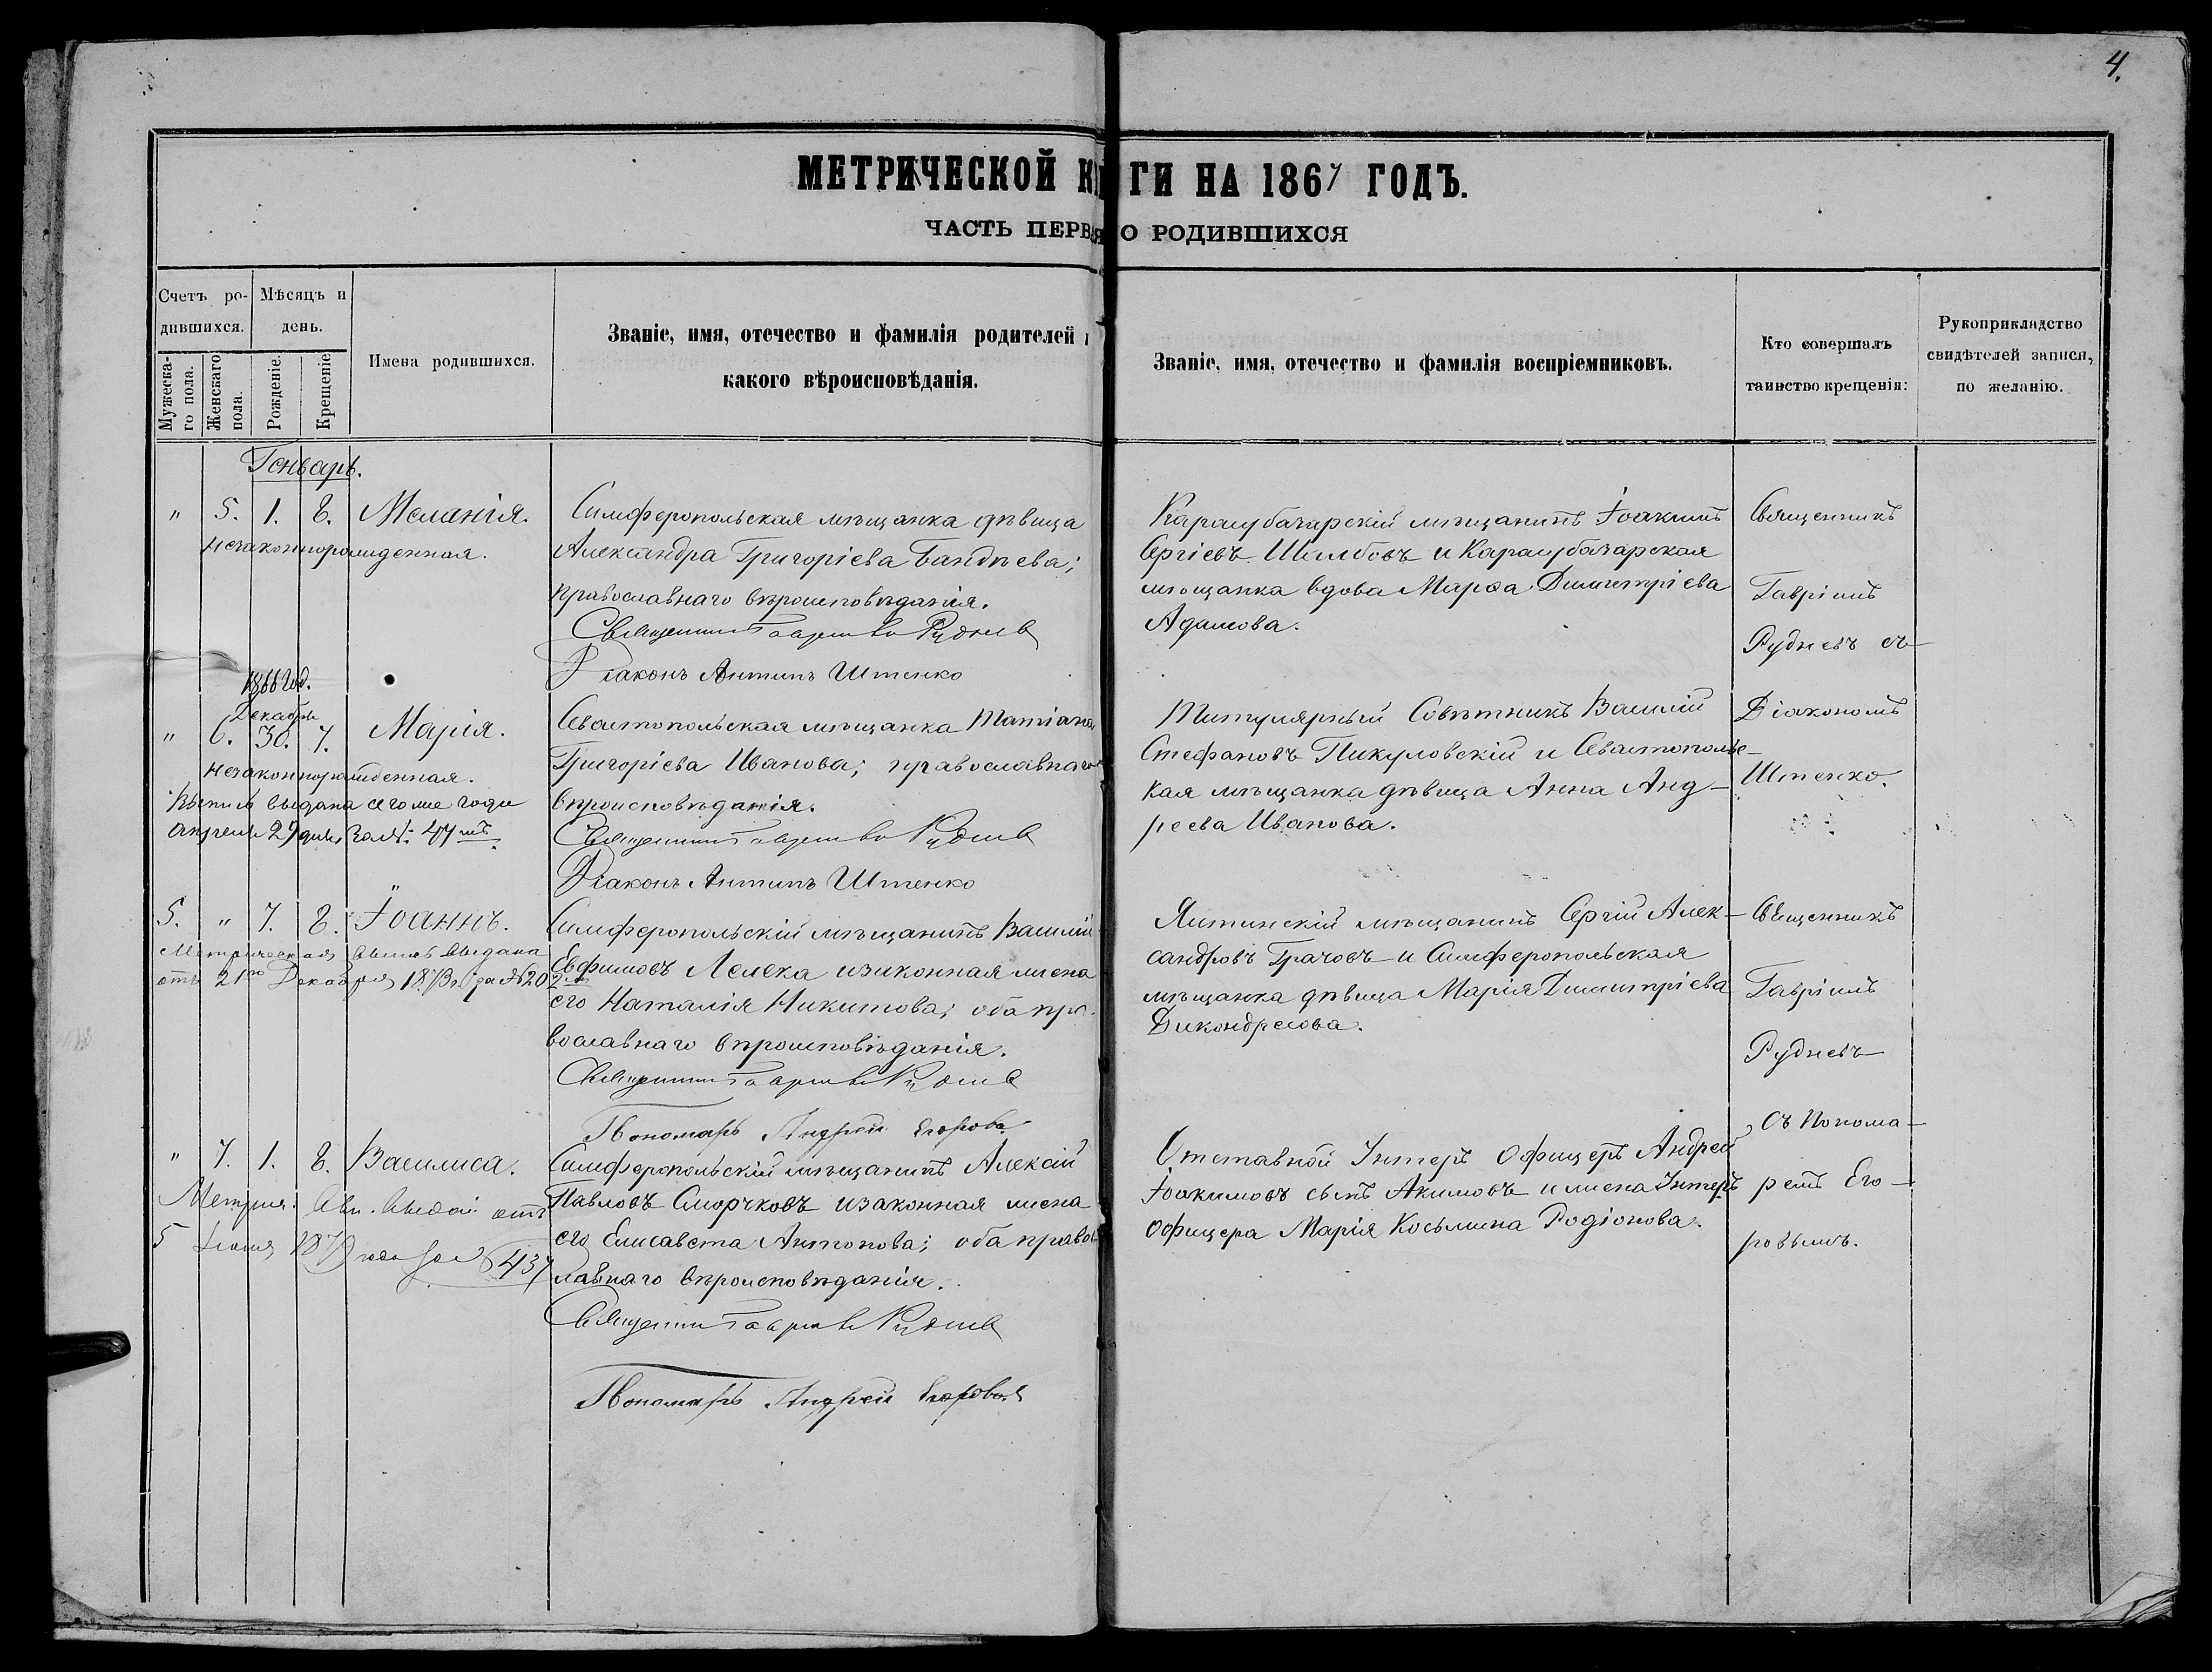 4.
МЕТРИЧЕСКОЙ КНИГИ НА 1867 ГОДЪ.
ЧАСТЬ ПЕРВАЯ О РОДИВШИХСЯ
Счетъ ро-
дившихся.
Мѣсяцъ и
день.
Мужеска-
го пола.
Женскаго
пола.
Рожденіе.
Крещеніе.
Имена родившихся.
Званіе, имя, отечество и фамилія родителей и
какого вѣроисповѣданія.
Званіе, имя, отечество и фамилія воспріемниковъ.
Кто совершалъ
таинство крещенія:
Рукоприкладство
свидѣтелей записи,
по желанію.
Генварь.
" 5. 1. 8. Меланія.
незаконнорожденная.
Симферопольская мѣщанка дѣвица
Александра Григоріева
православнаго вѣроисповѣданія.
Священникъ Гавріилъ Рудневъ
Діаконъ Антипъ Штенко
Карасубазарскій мѣщанинъ Іоакимъ
Сергіевъ и Карасубазарская
мѣщанка вдова Марѳа Димитріева
Адамова.
Священникъ
Гавріилъ
Рудневъ съ
1866 год.
Декабрь
" 6. 30. 7. Марія.
незаконнорожденная.
Выпись выдана сего же года
Апрѣля 29 дня, за №: 47мъ.
Севастопольская мѣщанка Татіана
Григоріева Иванова; православнаго
вѣроисповѣданія.
Священникъ Гавріилъ Рудневъ
Діаконъ Антипъ Штенко
Титулярный Совѣтникъ Василій
Стефановъ Пикуловскій и Севастопольс-
кая мѣщанка дѣвица Анна Анд-
реева Иванова.
Діакономъ
Штенко.
5. " 7. 8. Іоаннъ.
Метрическая выпись выдана
отъ 21го Декабря 1873 г. за № 202
Симферопольскій мѣщанинъ Василій
Евфимовъ Лелека и законная жена
его Наталія Никитова; оба пра-
вославнаго вѣроисповѣданія.
Священникъ Гавріилъ Рудневъ
Пономарь Андрей Егоровъ
Ялтинскій мѣщанинъ Сергій Алек-
сандровъ Грачовъ и Симферопольская
мѣщанка дѣвица Марія Димитріева
Священникъ
Гавріилъ
Рудневъ
съ Понома-
" 7. 1. 8. Василиса.
отъ
5
437
Симферопольскій мѣщанинъ Алексій
Павловъ Сморчковъ и законная жена
его Елисавета Антонова; оба правос-
лавнаго вѣроисповѣданія.
Священникъ Гавріилъ Рудневъ
Пономарь Андрей Егоровъ
Отставной Унтеръ Офицеръ Андрей
Іоакимовъ сынъ Акимовъ и жена Унтеръ
офицера Марія Косьмина Родіонова.
ремъ Его-
ровымъ.